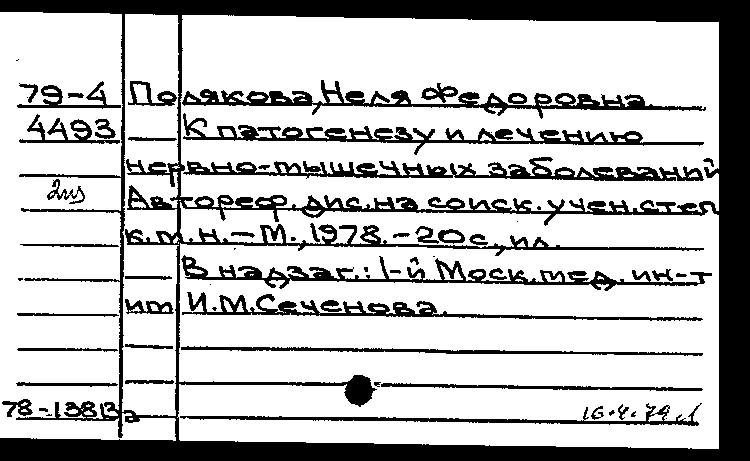 79-4 Полякова, Неля Федоровна.
4493 К патогенезу и лечению
нервно-мышечных заболеваний
Автореф. дис. на соиск. учен. степ
к.м.н. - М., 1978. - 20 с., ил.
В надзаг.: 1-й Моск. мед. ин-т
им И.М. Сеченова.
78-13813а 16.4.79